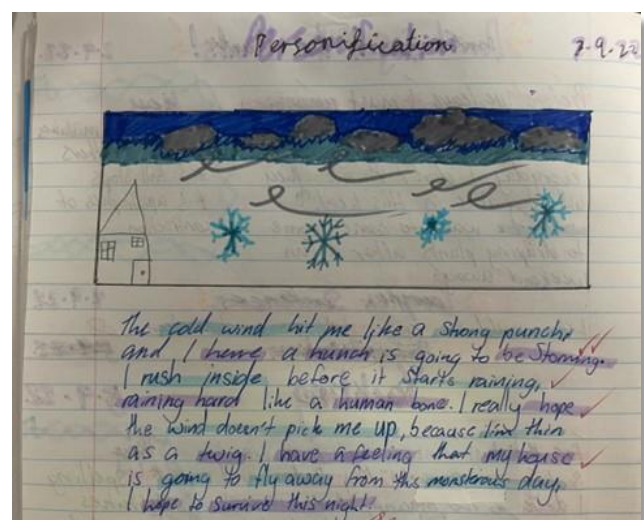 Personification
7.9.22
The cold wind hit me like a strong punch,
and I have a hunch is going to be Storming.
I rush inside before it starts raining,
raining hard like a human bone. I really hope
the wind doesn't pick me up, because I'm thin
as a twig. I have a feeling that my house
is going to fly away from this monsterous day,
I hope to survive this night!